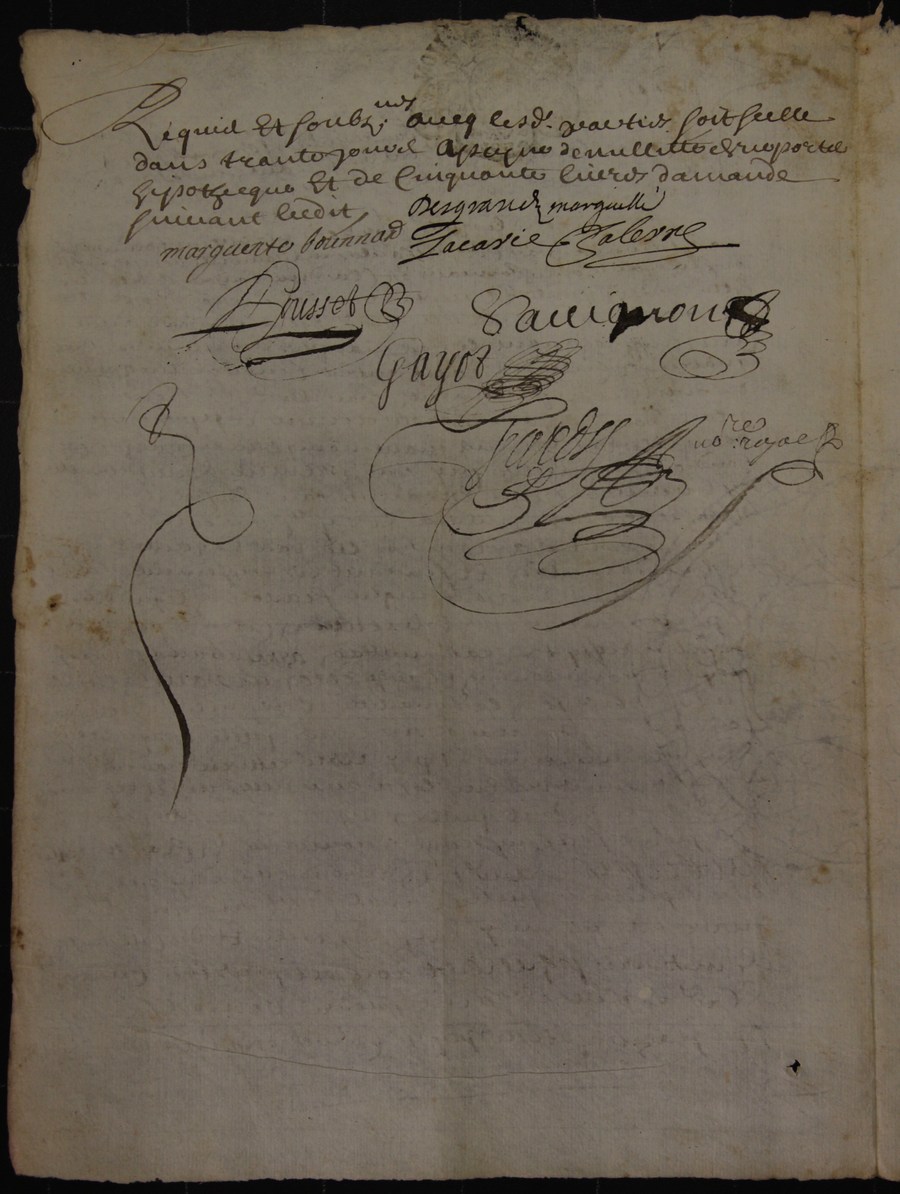 Requis Et soubz.nés avecq lesd. parties soit scelle
dans trante jours a peyne de nullitté de ne porter
hipothecque Et de Cinquante livres damande
suivant ledit
Desgrands marguillé
marguerite bonnard Zacarie Valesre
Grusset
Sauvignon
Gayot
Hardy no.re royal